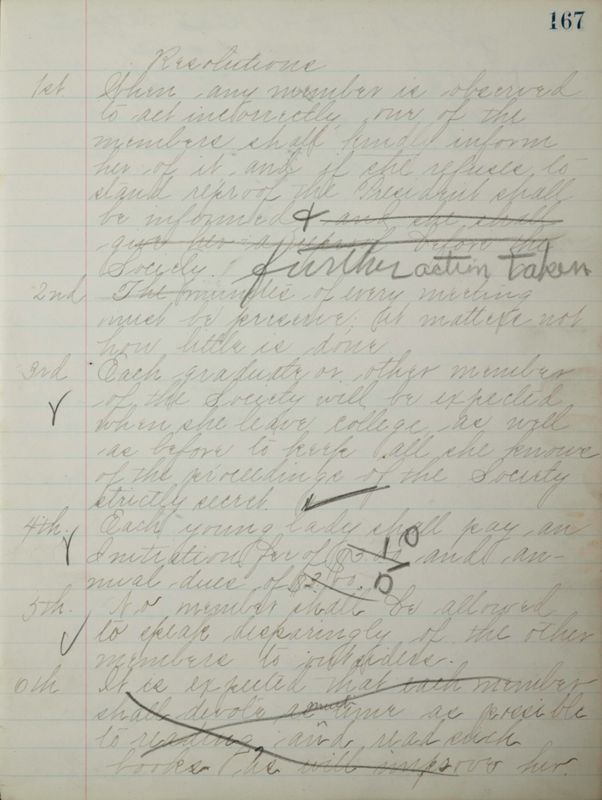 167
Resolutions
1st When any member is observed
to act incorrectly, one of the
members shall kindly inform
her of it, and if she refuses to
stand reproof the President shall
be informed & and she shall
give her a reproof before the
Society. further action taken
2nd The minutes of every meeting
must be preserve; it matters not
how little is done
3rd Each graduate or other member
of the Society will be expected
when she leave college as well
as before to keep all she knows
of the proceedings of the Society
strictly secret.
4th. Each young lady shall pay an
Initiation fee of $3.00 and an-
nual dues of $2.00.
5th. No member shall be allowed
to speak disparingly of the other
members to outsiders.
6th It is expected that each member
shall devote as much time as possible
to reading, and read such
books as will improve her.